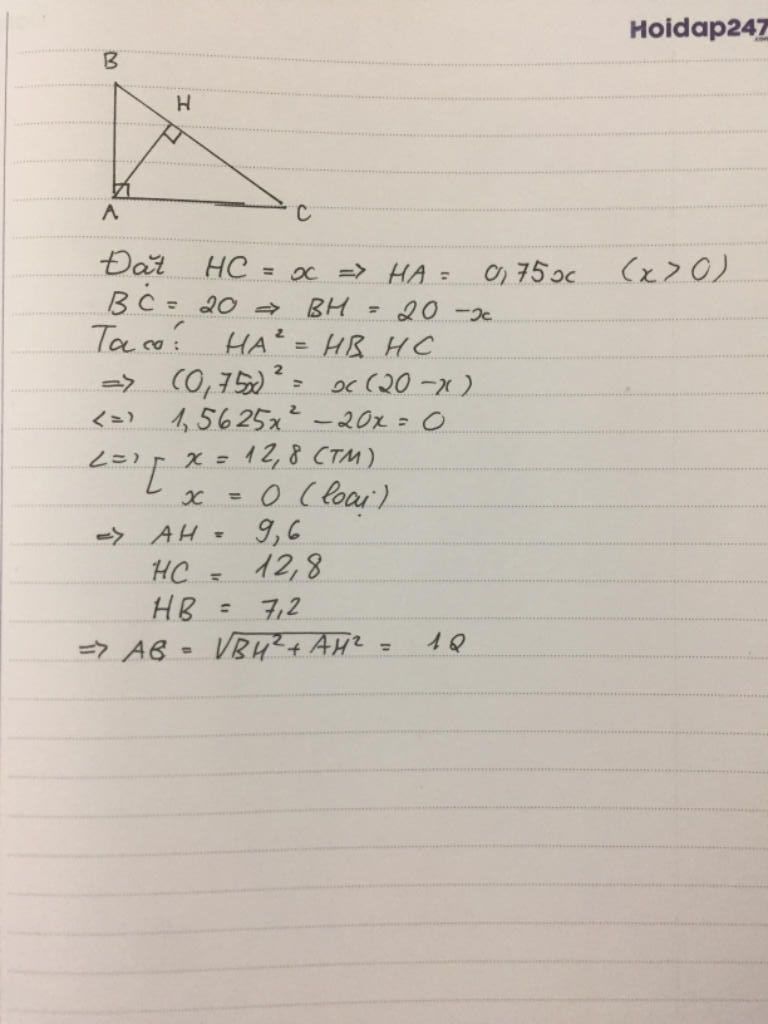 Hoidap247
.com
B
H
A
C
Đặt HC = x => HA = 0,75x (x > 0)
BC = 20 => BH = 20 - x
Ta có: HA² = HB. HC
=> (0,75x)² = x(20 - x)
<=> 1,5625x² - 20x = 0
<=> [ x = 12,8 (TM)
x = 0 (loại)
=> AH = 9,6
HC = 12,8
HB = 7,2
=> AB = √BH² + AH² = 12